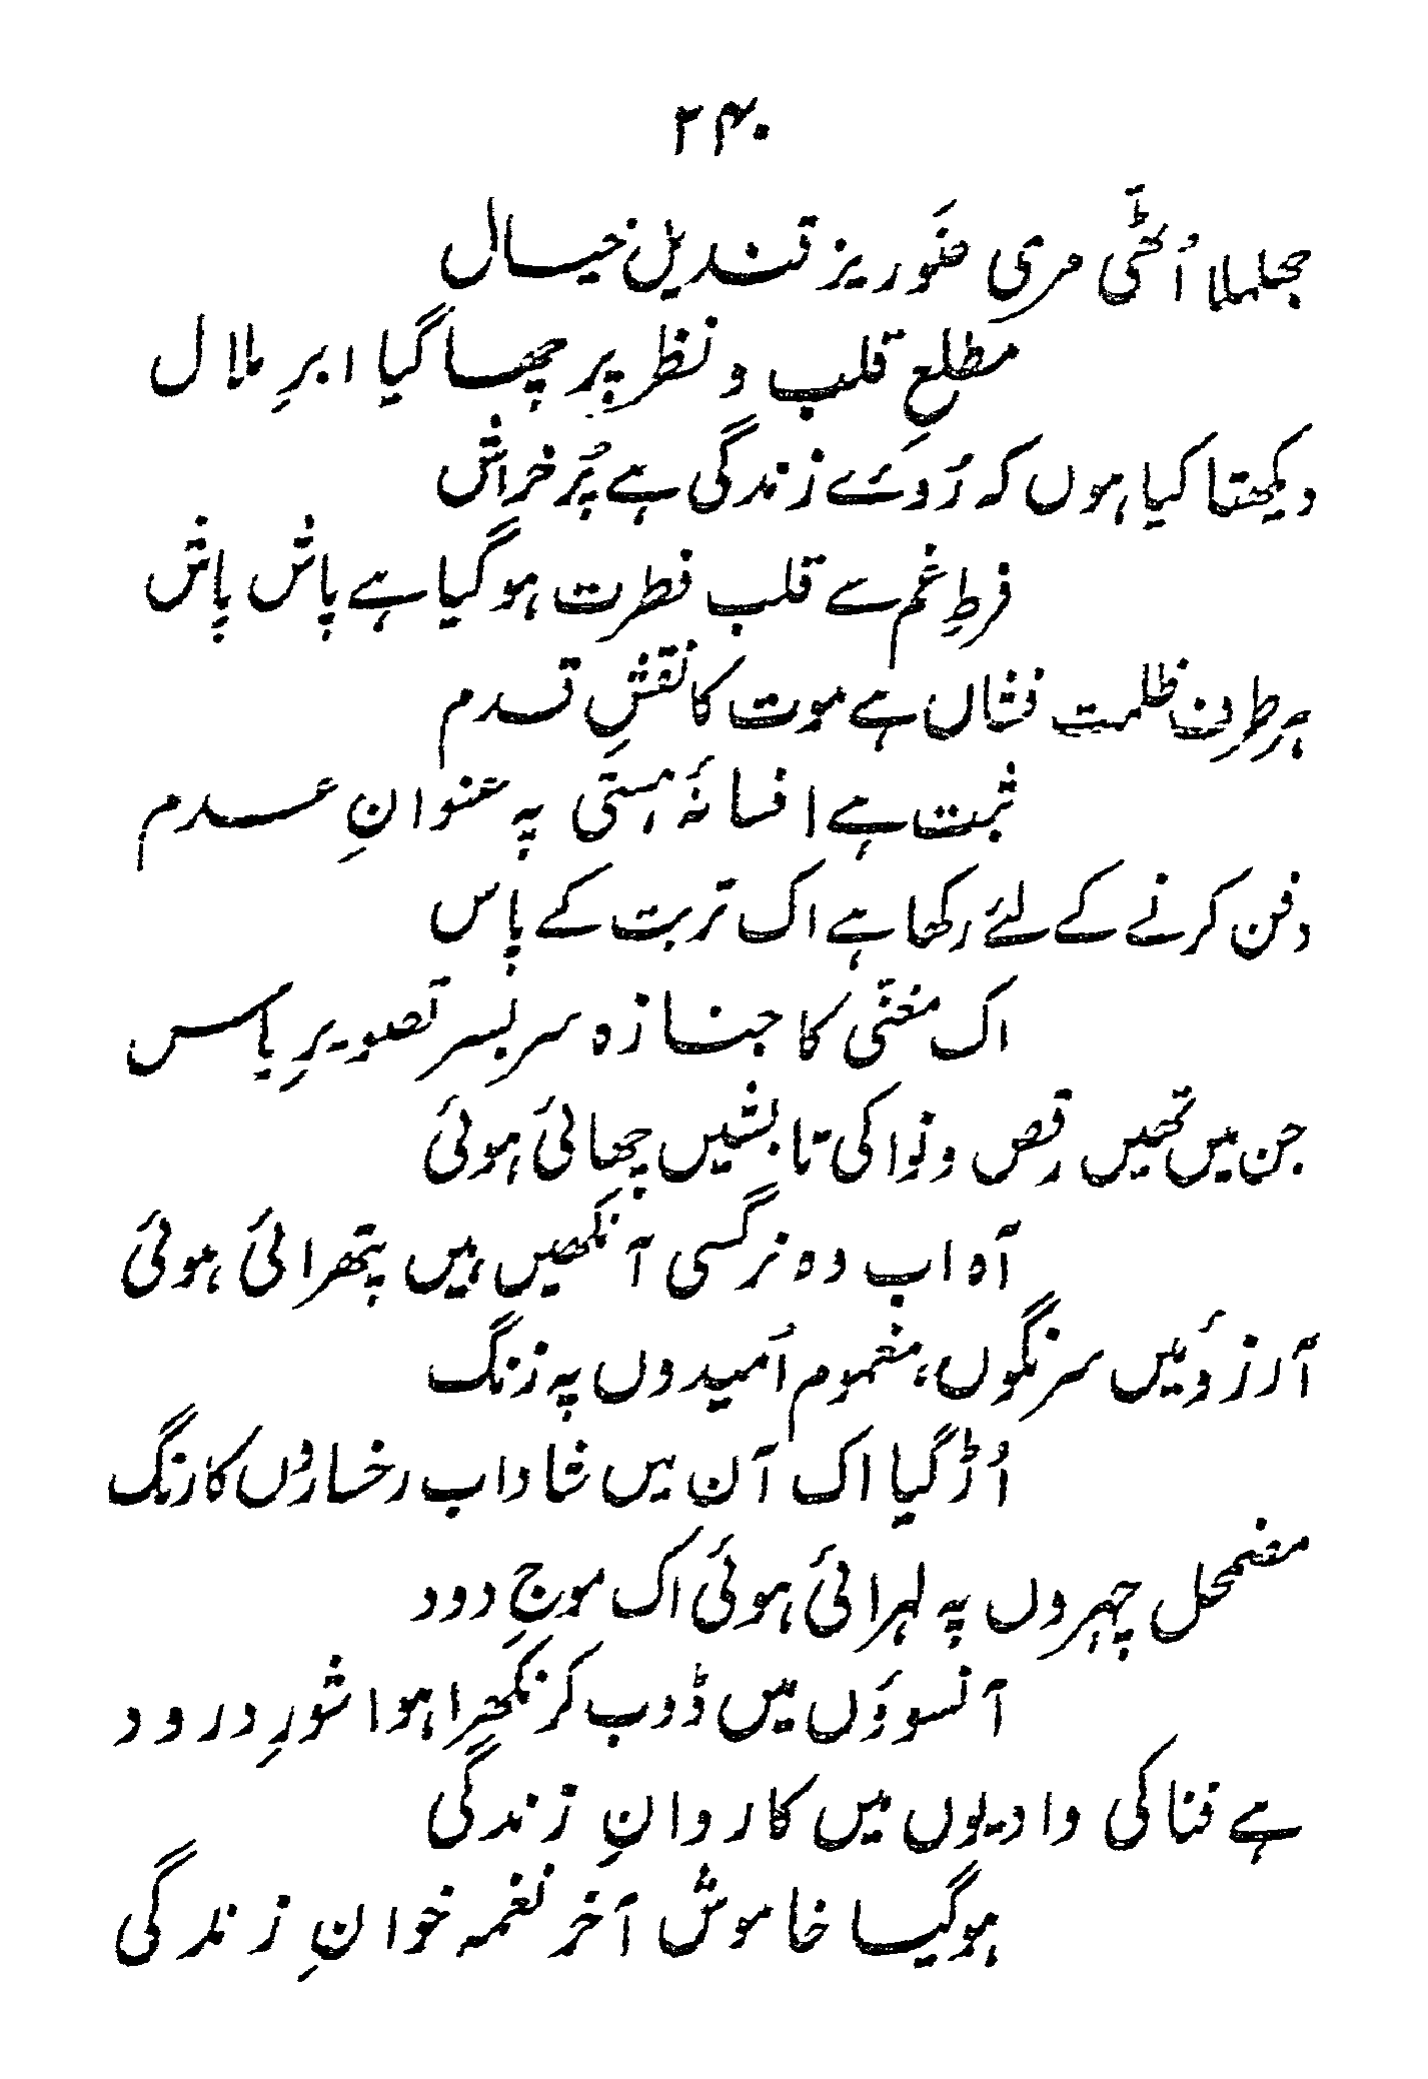 ۲۴۰
جھلملا اُٹھّی مری ضَوریز قندیلِ خیال
مطلعِ قلب و نظر پر چھا گیا ابرِ ملال
دیکھتا کیا ہوں کہ رُوئے زندگی ہے پُر خراش
فرطِ غم سے قلب فطرت ہو گیا ہے پاش پاش
ہر طرف ظلمت فشاں ہے موت کا نقشِ قدم
ثبت ہے افسانۂ ہستی پہ عنوانِ عدم
دفن کرنے کے لئے رکھا ہے اک تربت کے پاس
اک مغنّی کا جنازہ سربسر تصویرِ یاس
جن میں تھیں رقص و نوا کی تابشیں چھائی ہوئی
آہ اب وہ نرگسی آنکھیں ہیں پتھرائی ہوئی
آرزوئیں سرنگوں، مغموم اُمیدوں پہ زنگ
اُڑ گیا اک آن میں شاداب رخساروں کا رنگ
مضمحل چہروں پہ لہرائی ہوئی اک موجِ دود
آنسوؤں میں ڈوب کر نکھرا ہوا شورِ درود
ہے فنا کی وادیوں میں کاروانِ زندگی
ہو گیا خاموش آخر نغمہ خوانِ زندگی